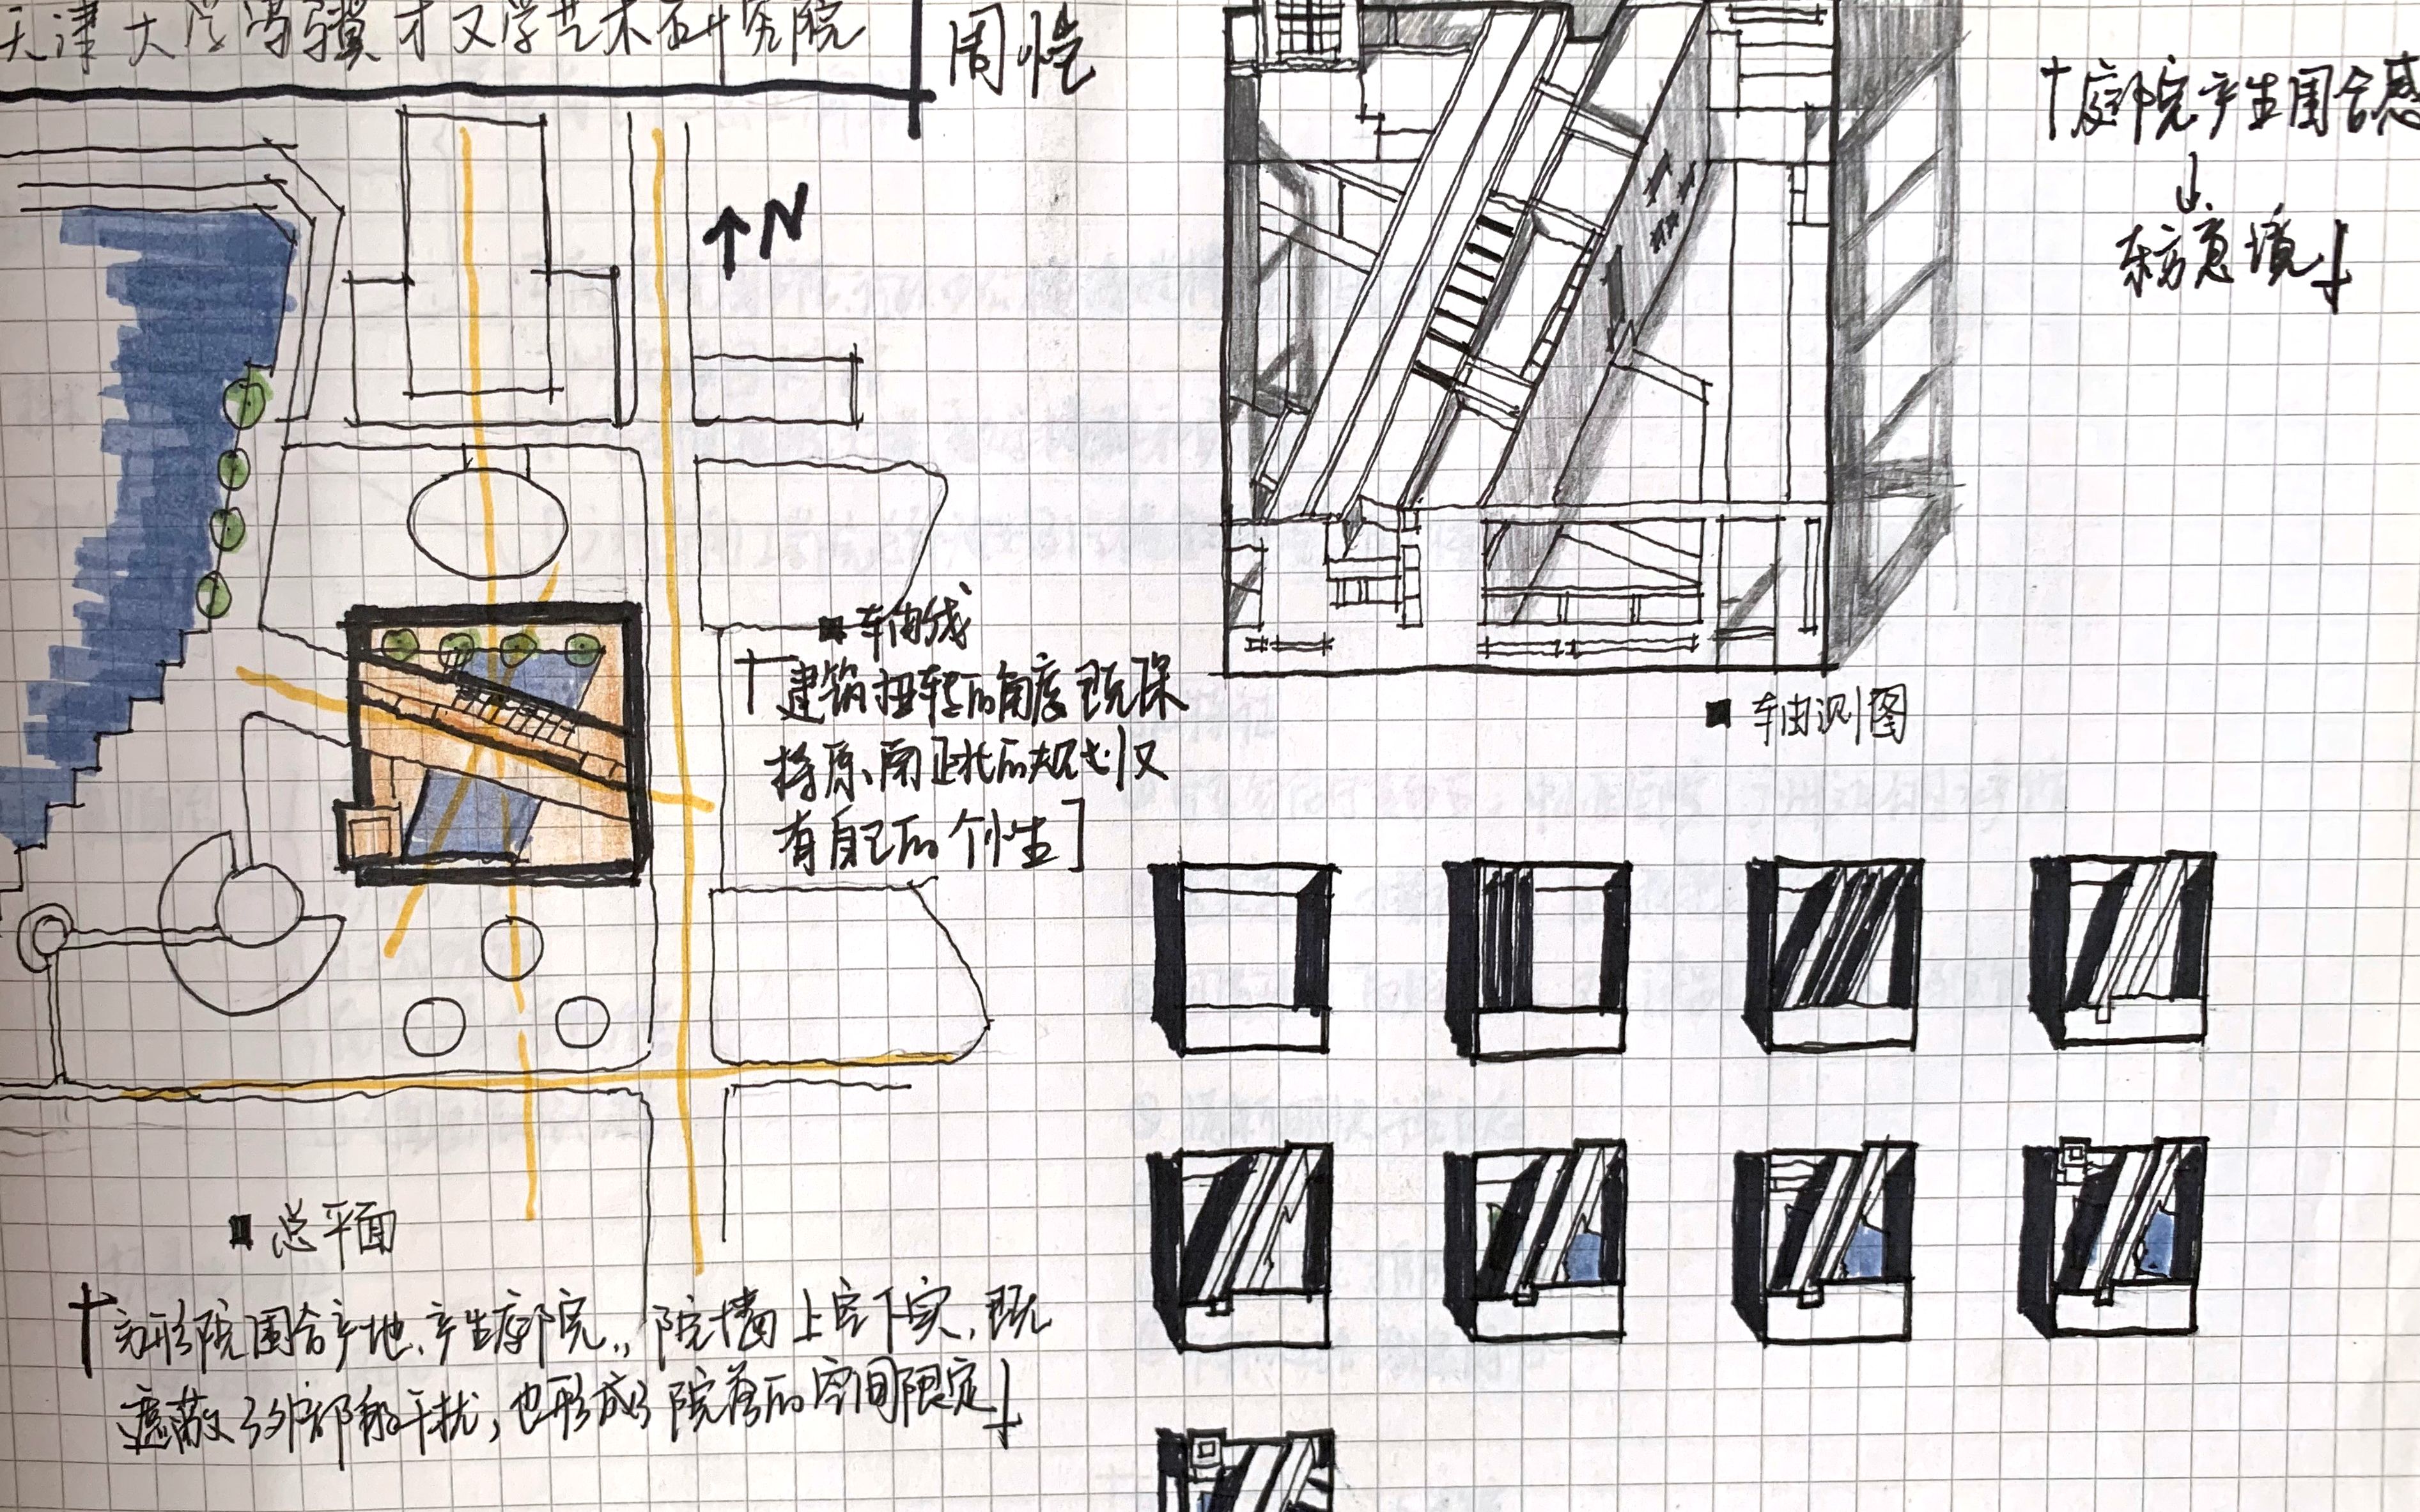 天津大学冯骥才文学艺术研究院
周恺
N
「庭院产生围合感
↓
东方意境」
■ 轴线
「建筑扭转的角度既保
持原南北的规划又
有自己的个性」
■ 轴测图
■ 总平面
「方形院围合产地、产生庭院，院墙上空下实，既
遮蔽了外部的干扰，也形成了院落的空间限定」